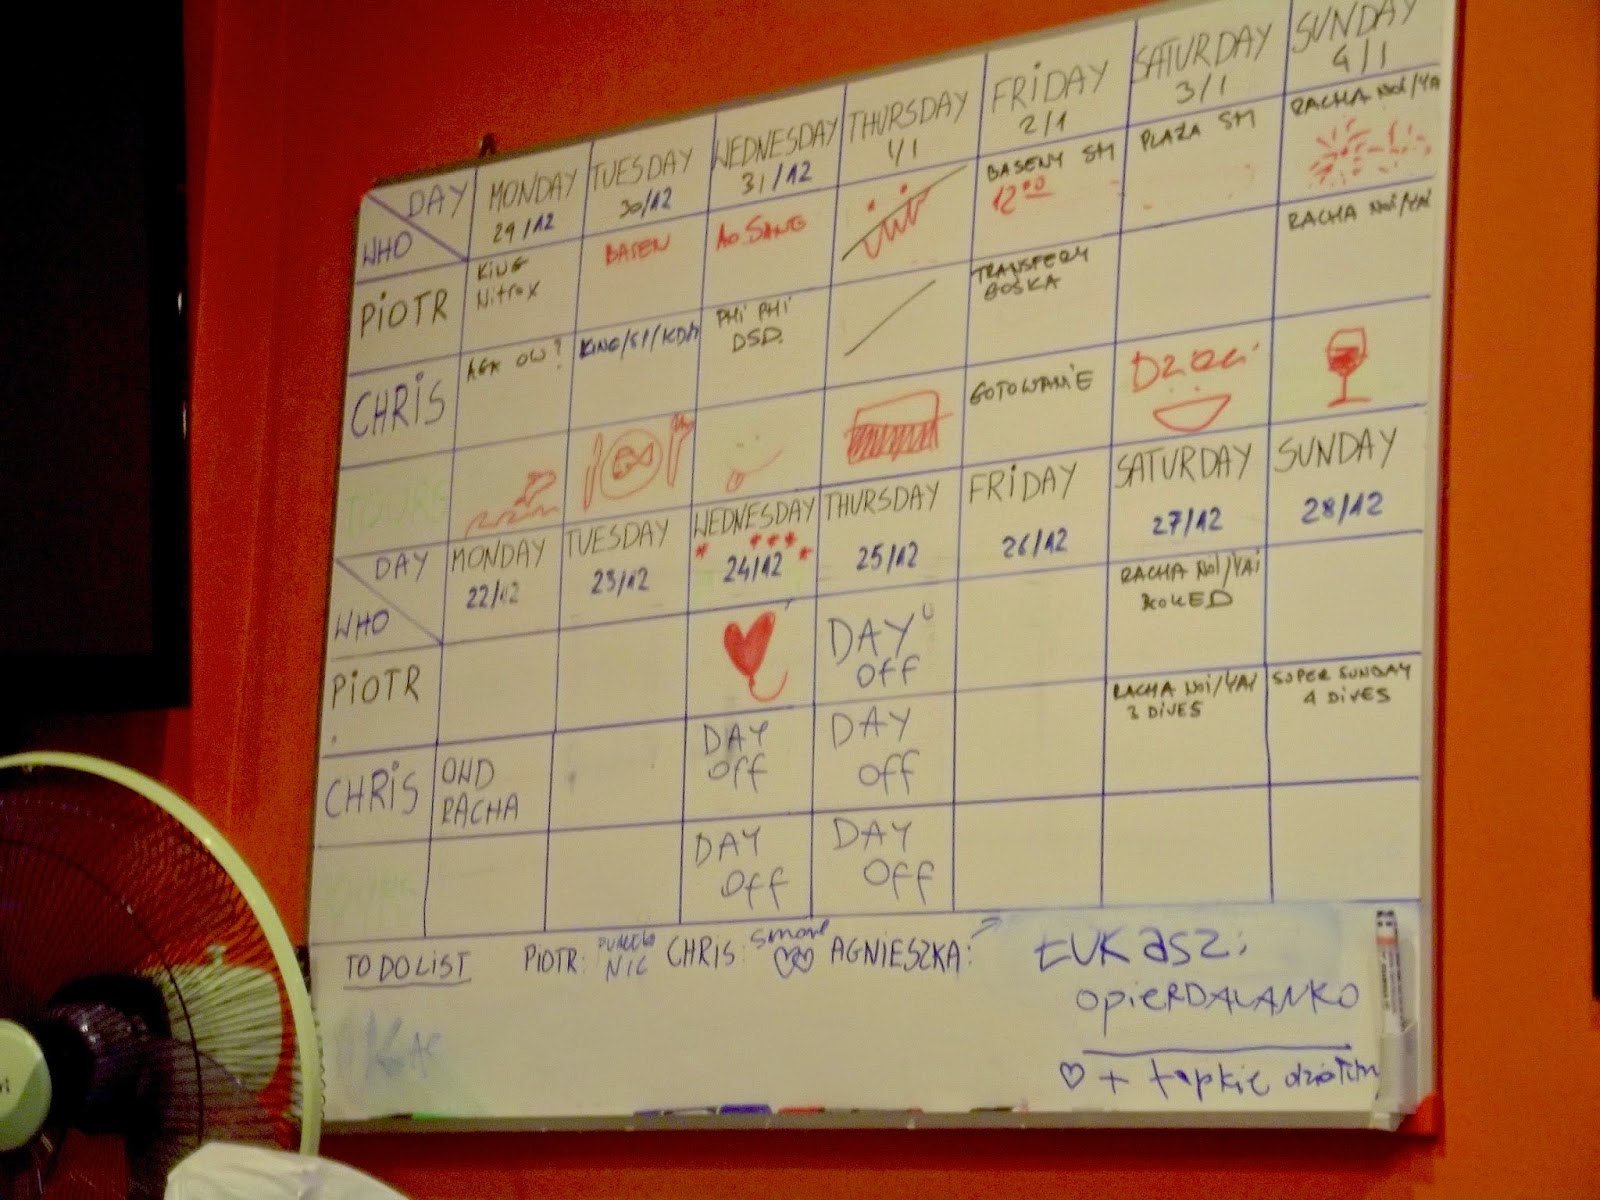 DAY MONDAY TUESDAY WEDNESDAY THURSDAY FRIDAY SATURDAY SUNDAY
WHO 29/12 30/12 31/12 1/1 2/1 3/1 4/1
PIOTR KING BASEN AO SANG BASENY SM PLAZA SM RACHA NOI/YA
NITROX 12⁰⁰
CHRIS AGA OW? KING/SI/KDA PHI PHI TRANSFERY RACHA NOI/YAI
DSD. GOŚKA
TOURS GOTOWANIE DZIECI
DAY MONDAY TUESDAY WEDNESDAY THURSDAY FRIDAY SATURDAY SUNDAY
WHO 22/12 23/12 24/12 25/12 26/12 27/12 28/12
PIOTR DAY RACHA NOI/YAI
OFF
CHRIS OWD DAY DAY RACHA NOI/YAI SUPER SUNDAY
RACHA OFF OFF 3 DIVES 4 DIVES
DAY DAY
OFF OFF
TO DO LIST PIOTR: NIC CHRIS: AGNIESZKA: ŁUKASZ:
OPIERDALANKO
♡ + łapkie